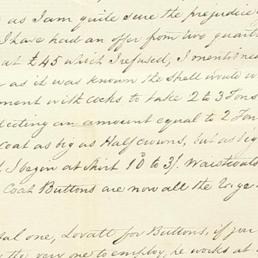 as I am quite sure the prejudice
I have had an offer from two quart
at £45 which I refused, I mentione
as it was known the Shell would w
ment with cocks to take 2 to 3 Tons
lecting an amount equal to 2 Ton
Coat as big as Half crowns, but as big
I began at Shirt 1d to 3/. Waistcoats
Coat Buttons are now all the
al one, Lovatt for Buttons, if you
the very one to employ, he works at